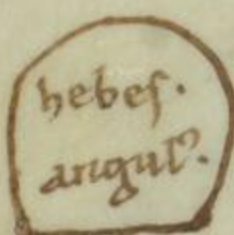 hebes.
angul᷒.